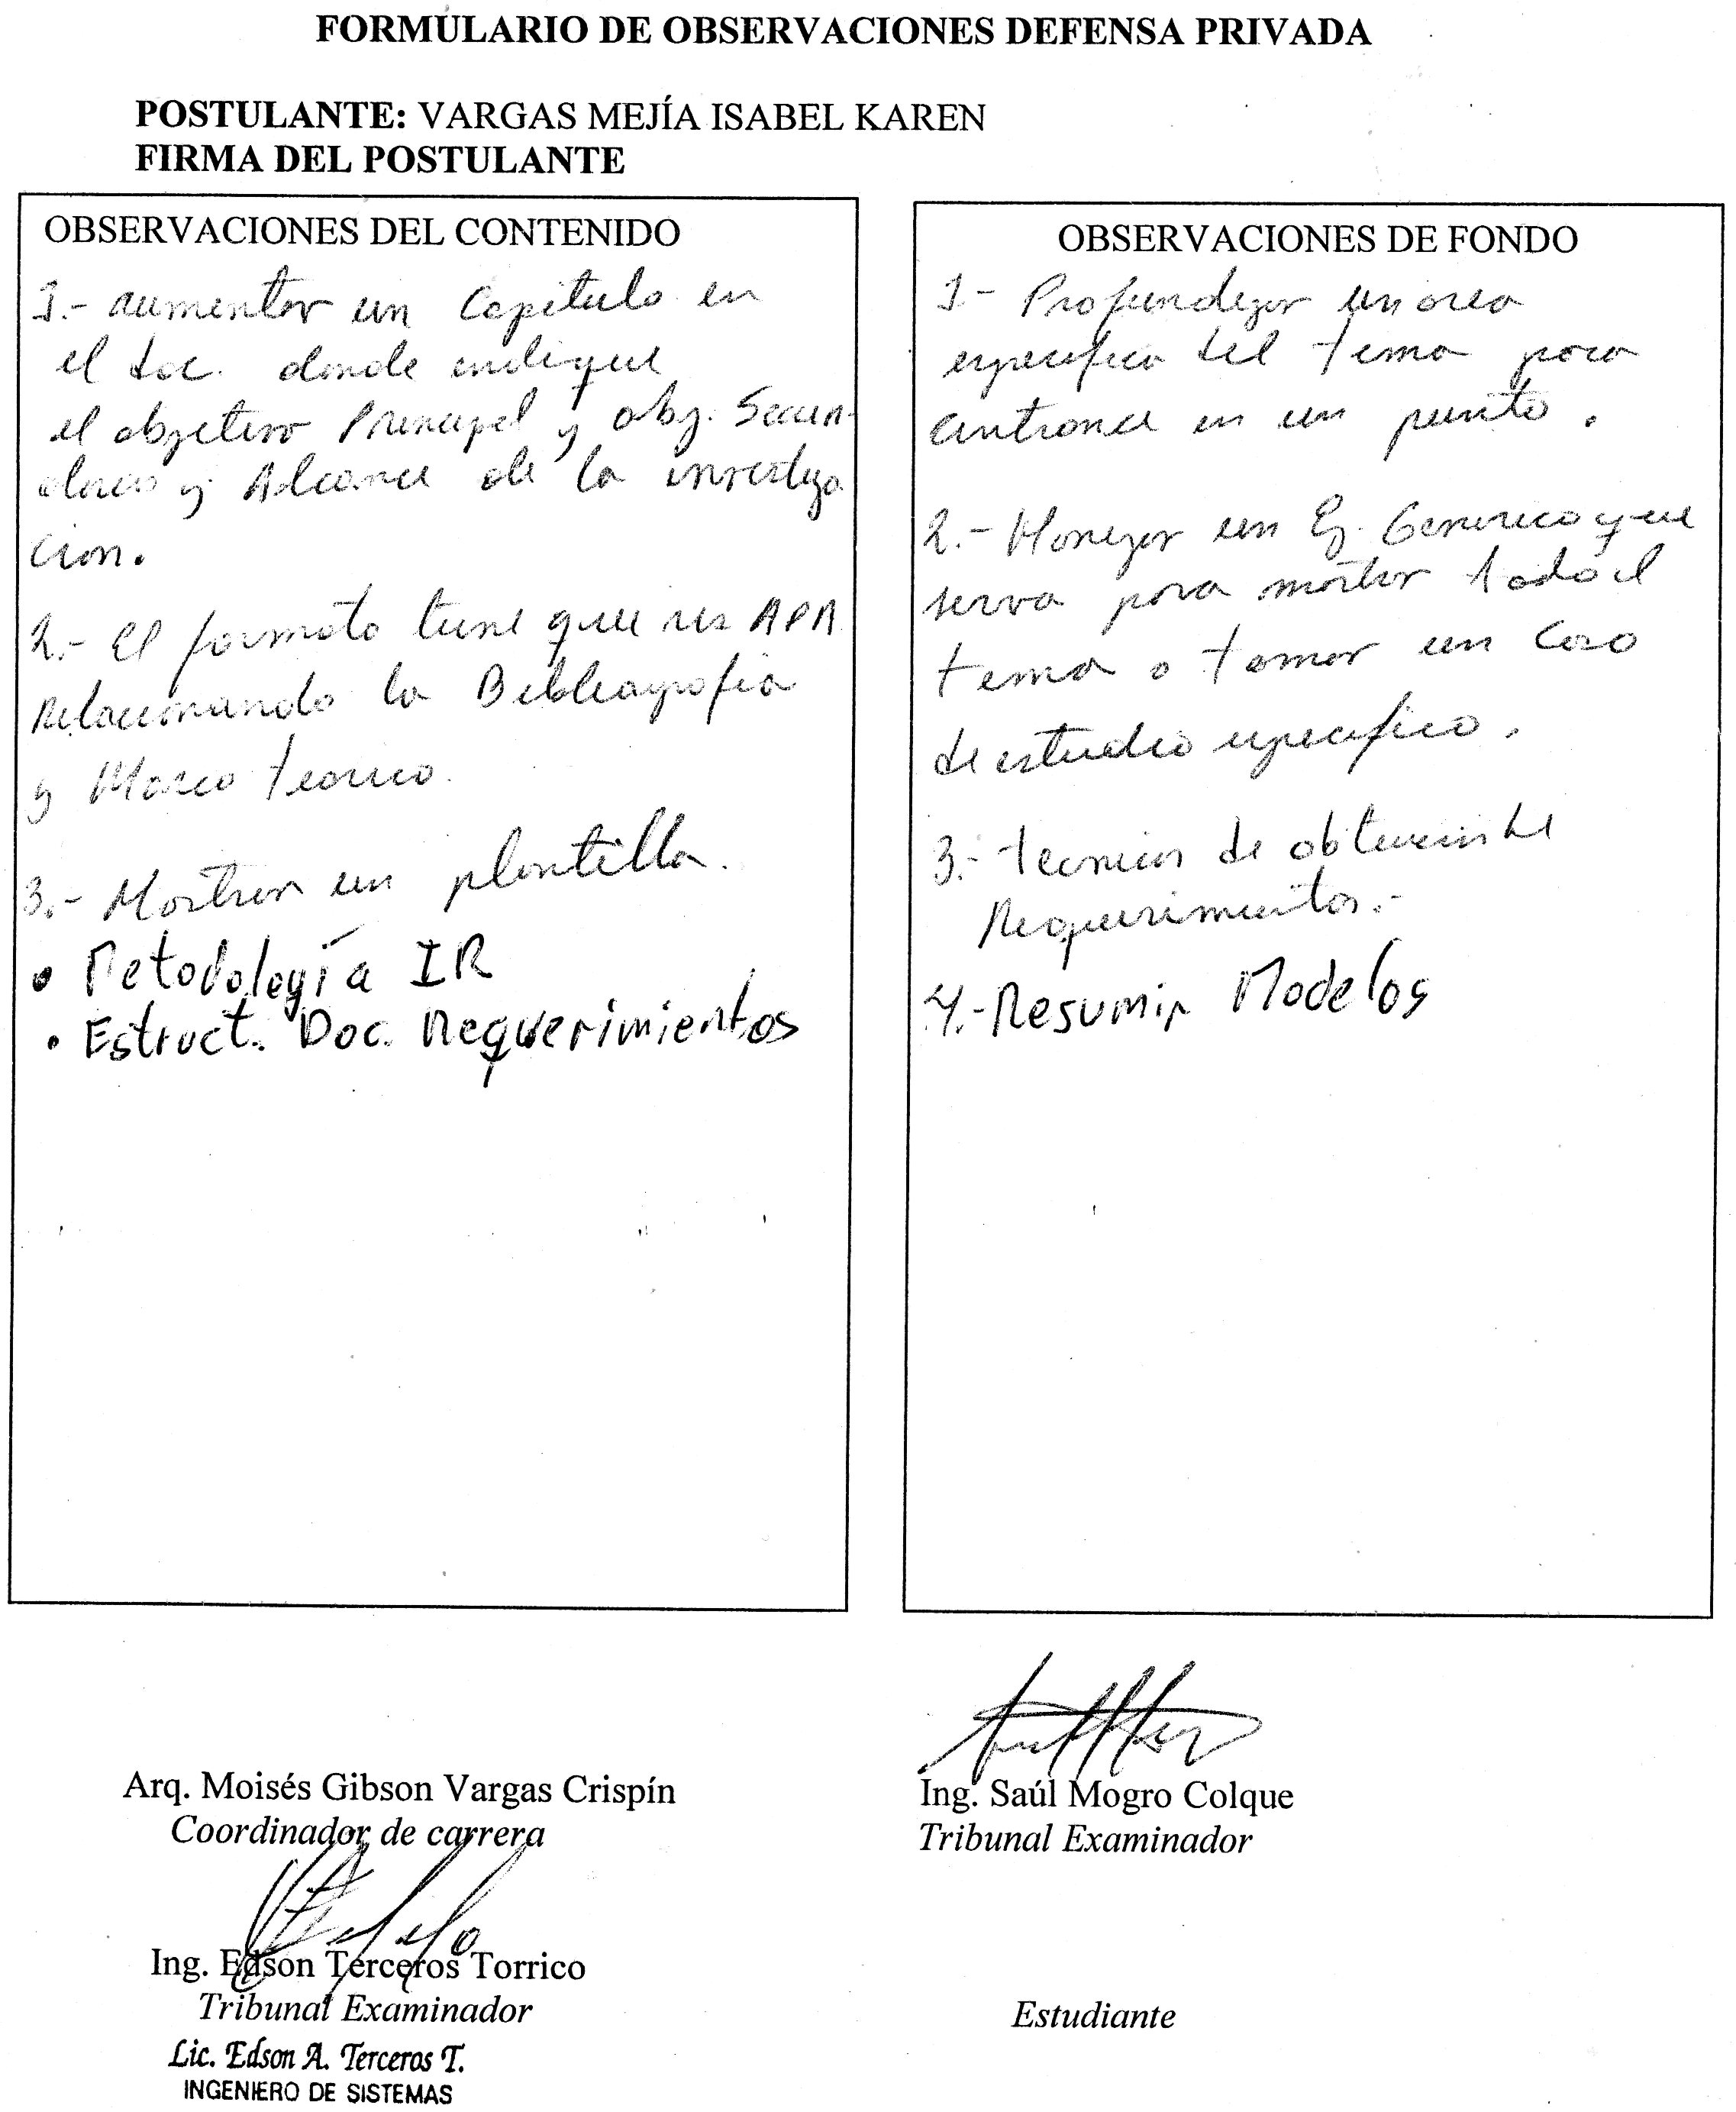 FORMULARIO DE OBSERVACIONES DEFENSA PRIVADA
POSTULANTE: VARGAS MEJÍA ISABEL KAREN
FIRMA DEL POSTULANTE
OBSERVACIONES DEL CONTENIDO
1.- aumentar un Capitulo en
el doc. donde indique
el objetivo Principal y obj. Secun-
darios y Alcance de la investiga
cion.
2.- El formato tiene que ser APA
Relacionando la Bibliografia
y Marco teorico.
3.- Mostrar un plantilla.
• Metodología IR
• Estruct. Doc. Requerimientos
OBSERVACIONES DE FONDO
1- Profundizar un area
especifica del tema para
centrarse en un punto.
2.- Manejar un Ej. Generico que
serva para mostrar todo el
tema o tomar un caso
de estudio especifico.
3.- tecnicas de obtencion de
Requerimientos.-
4.- Resumir Modelos
Arq. Moisés Gibson Vargas Crispín
Coordinador de carrera
Ing. Saúl Mogro Colque
Tribunal Examinador
Ing. Edson Terceros Torrico
Tribunal Examinador
Lic. Edson A. Terceros T.
INGENIERO DE SISTEMAS
Estudiante